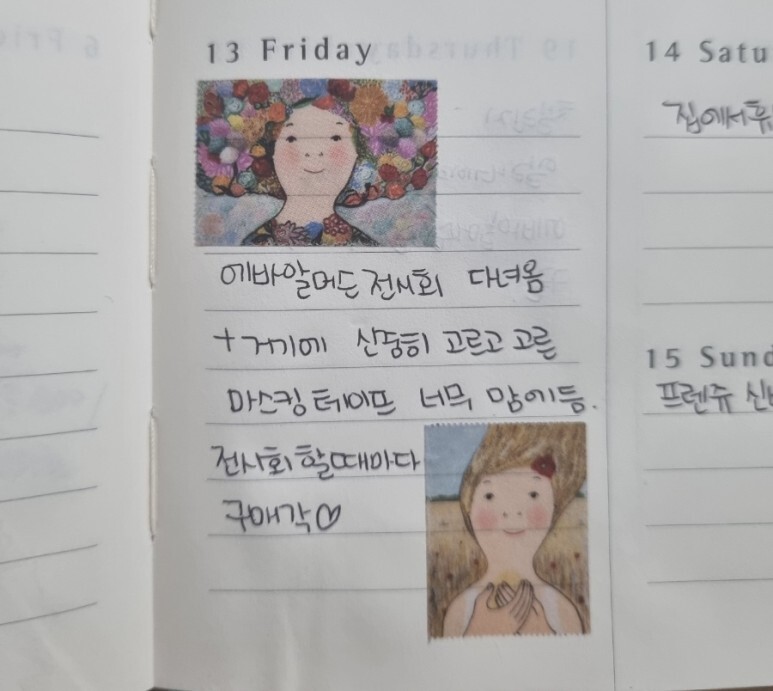 13 Friday
에바알머드 전시회 다녀옴
+ 거기에 신중히 고르고 고른
마스킹 테이프 너무 맘에듬.
전시회 할때마다
구매각♡
14 Satu
집에서
15 Sund
프렌쥬